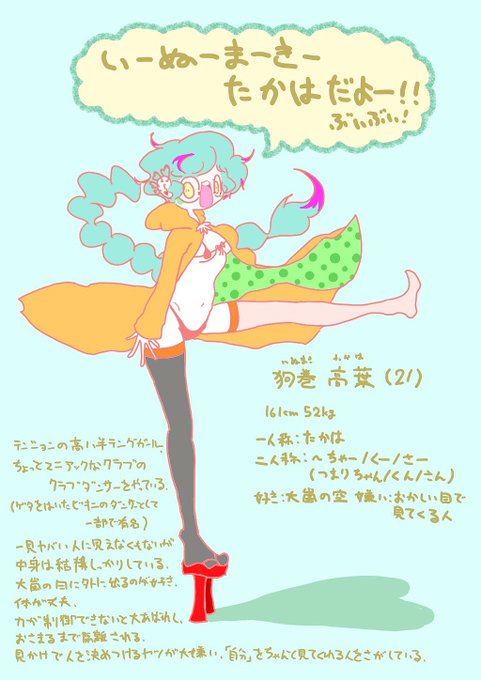 いーぬーまーきー
たかはだよー!!
ぶいぶい!
いぬまき たかは
狗巻 高葉(21)
161cm 52kg
一人称:たかは
二人称:〜ちゃー/くー/さー
(つまりちゃん/くん/さん)
好き:大嵐の空 嫌い:おかしい目で
見てくる人
テンションの高い半テングガール。
ちょっとマニアックなクラブの
クラブダンサーをやっている。
(ゲタをはいたビキニのダンサーとして
一部で有名)
一見ヤバい人に見えなくもないが
中身は結構しっかりしている。
大嵐の日に外に出るのが好き。
体が丈夫。
力が制御できないと大あばれし、
おさまるまで隔離される。
見かけで人を決めつけるヤツが大嫌い。「自分」をちゃんと見てくれる人をさがしている。